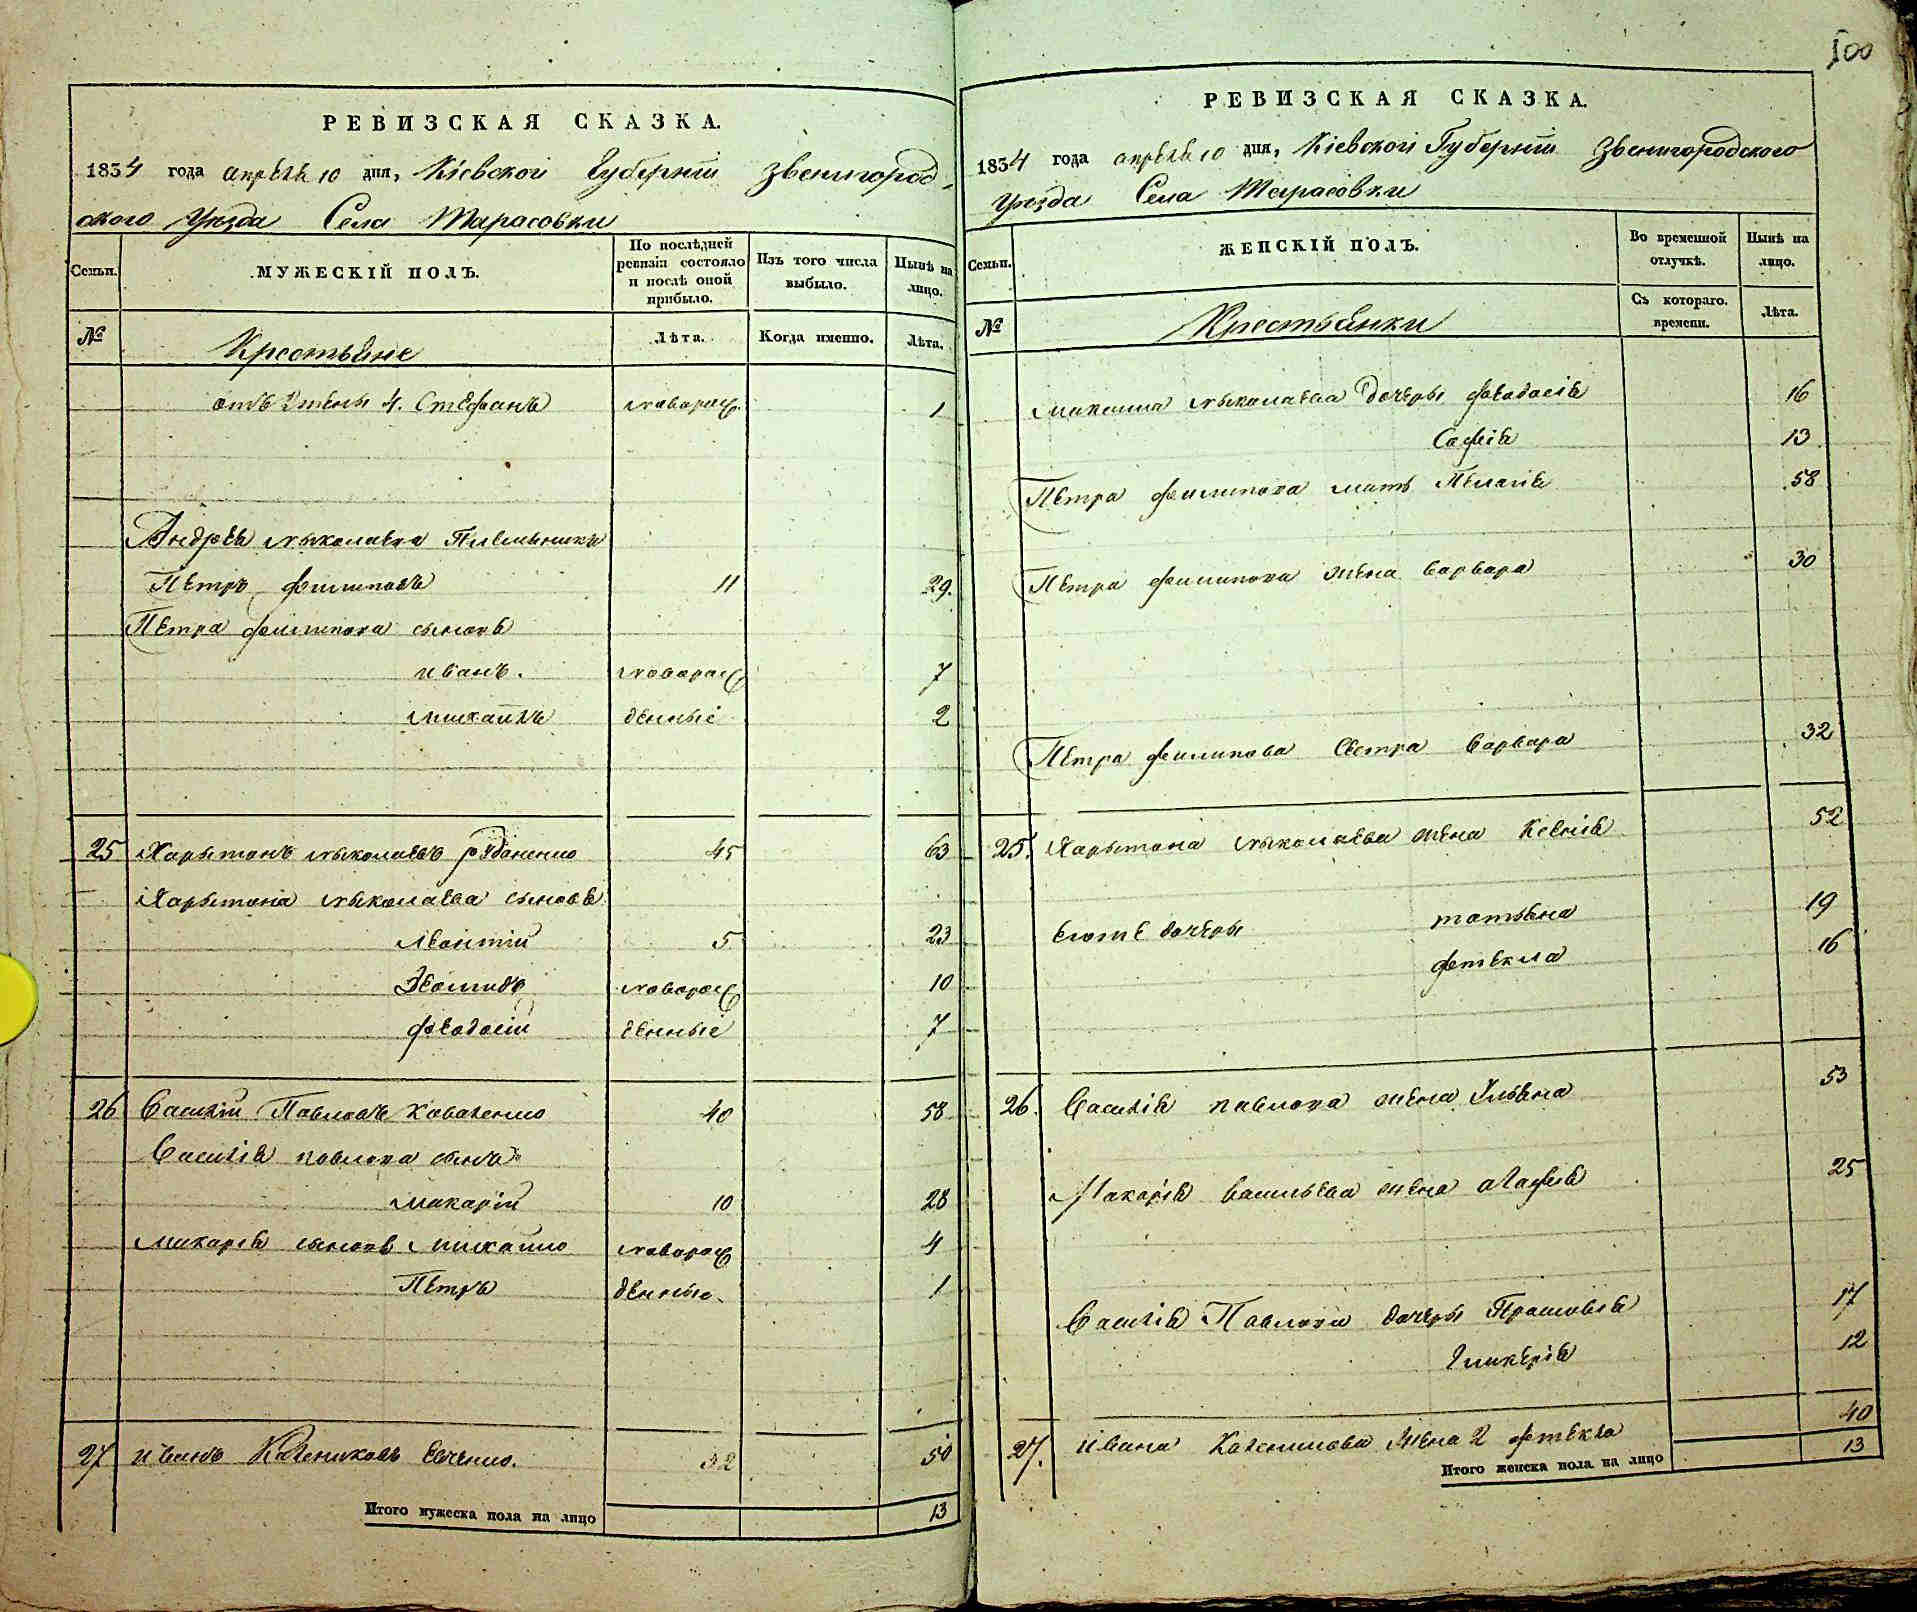 РЕВИЗСКАЯ СКАЗКА.
1834 года апреля 10 дня, Кіевской Губерніи Звенигород-
ского Уезда Села Тарасовки
Семьи.
МУЖЕСКІЙ ПОЛЪ.
По послѣдней ревизіи состояло и послѣ оной прибыло.
Изъ того числа выбыло.
Нынѣ на лицо.
№
Крестьяне
Лѣта.
Когда именно.
Лѣта.
отъ 2 жены 4. Стефанъ новорож. 1
Андрея Николаева
Петръ Филиповъ 11 29.
Петра Филипова сыновя
иванъ. новорож 7
михаилъ денныє 2
25 Харытонъ Николаевъ 45 63
Харытона Николаева сыновя
Леонтій 5 23
новорож 10
Феодосій денныє 7
26 Василій Павловъ Коваленко 40 58
Василія павлова сынъ
макарій 10 28
макарія сыновя михайло новорож 4
Петръ денные. 1
27 иванъ 32 50
Итого мужеска пола на лицо 13
500
РЕВИЗСКАЯ СКАЗКА.
1834 года апреля 10 дня, Кіевской Губерніи Звенигородского
Уезда Села Тарасовки
Семьи.
ЖЕНСКІЙ ПОЛЪ.
Во временной отлучкѣ.
Нынѣ на лицо.
№
Крестьянки
Съ котораго. времени.
Лѣта.
максима Николаева дочеры феодосія 16
Софія 13
Петра филипова мать Пелагія 58
Петра филипова жена варвара 30
Петра филипова Сестра варвара 32
25. Харытона Николаева жена Ксенія 52
егоже дочеры татьяна 19
фетекла 16
26. Василія павлова жена Ульяна 53
Макарія васильева жена агафія 25
Василія Павлова дочеры Прасковія 17
гликерія 12
27. ивана жена 2 фтекла 40
Итого женска пола на лицо 13